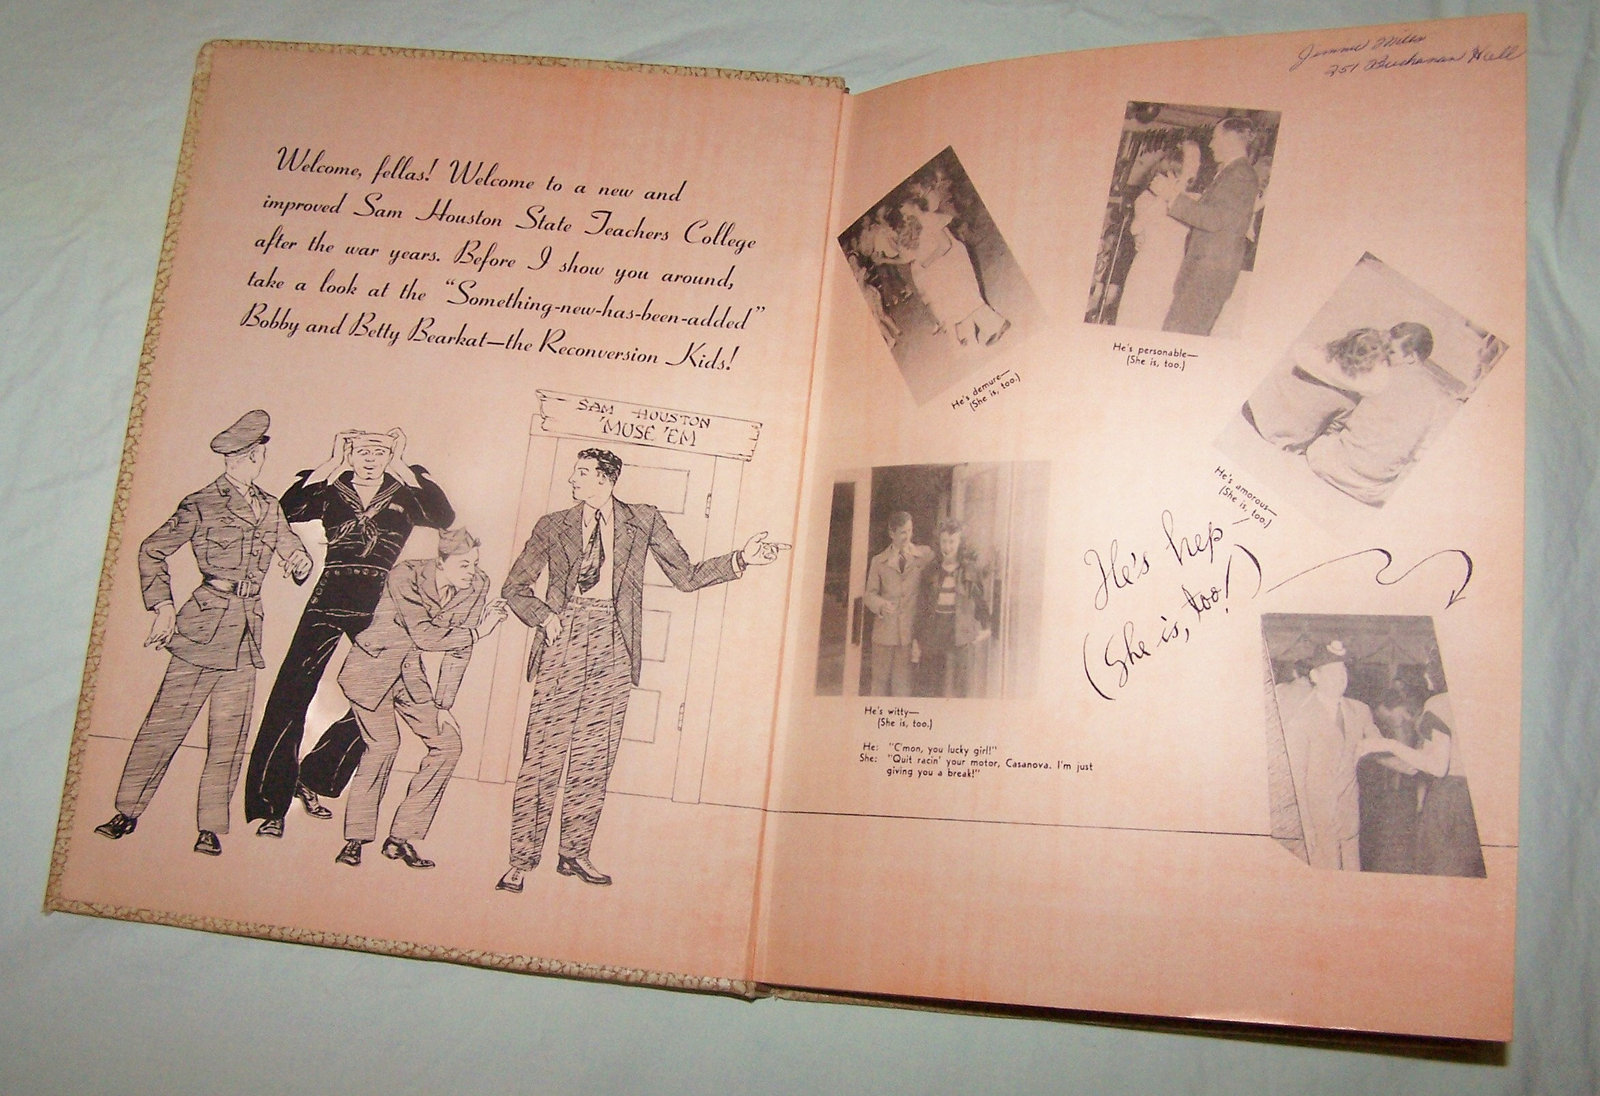 Welcome, fellas! Welcome to a new and
improved Sam Houston State Teachers College
after the war years. Before I show you around,
take a look at the "Something-new-has-been-added"
Bobby and Betty Bearkat—the Reconversion Kids!
SAM HOUSTON
'MUSE 'EM
Jimmie
251 Buchanan Hall
He's demure—
(She is, too.)
He's personable—
(She is, too.)
He's amorous—
(She is, too.)
He's hep—
(She is, too!)
He's witty—
(She is, too.)
He: "C'mon, you lucky girl!"
She: "Quit racin' your motor, Casanova. I'm just
giving you a break!"